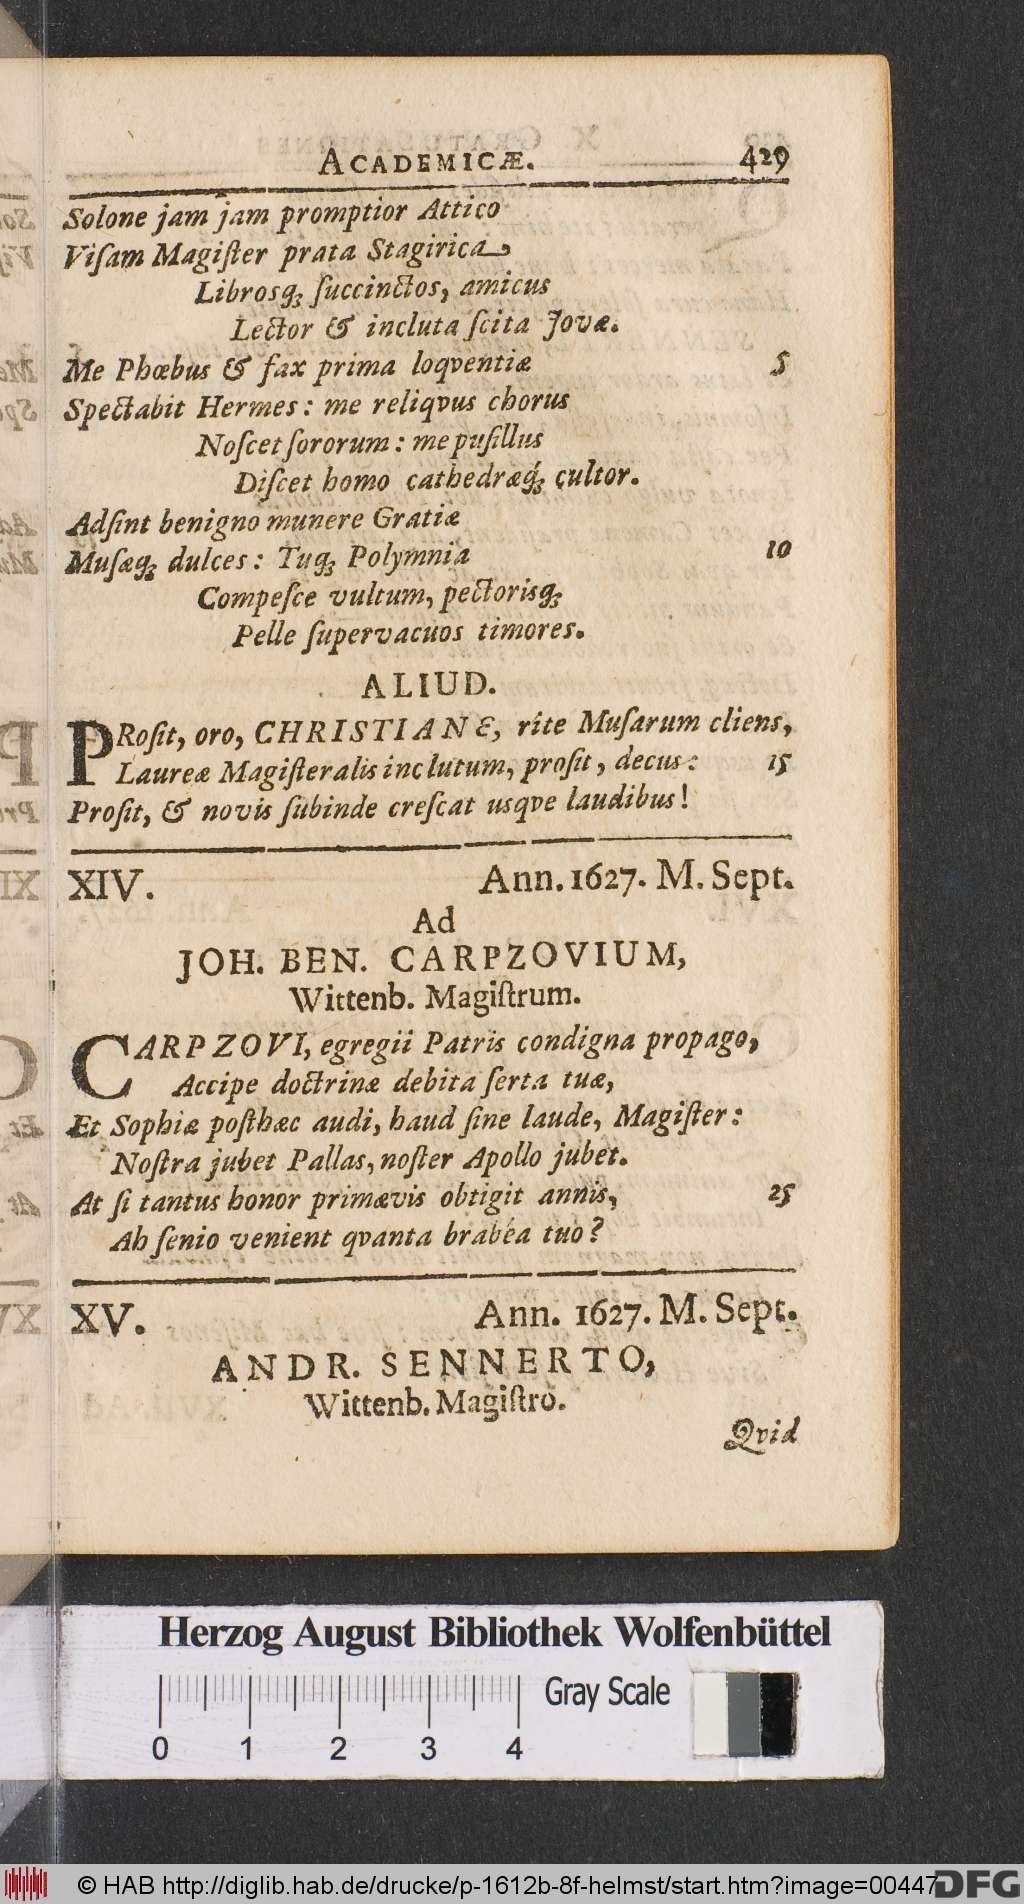 ACADEMICÆ. 429
Solone jam jam promptior Attico
Viſam Magiſter prata Stagirica,
Librosq́ꝫ ſuccinctos, amicus
Lector & incluta ſcita Jovæ.
Me Phœbus & fax prima loqventiæ 5
Spectabit Hermes: me reliqvus chorus
Noſcet ſororum: me puſillus
Diſcet homo cathedræq́ꝫ cultor.
Adſint benigno munere Gratiæ
Muſæqꝫ dulces: Tuqꝫ Polymnia 10
Compeſce vultum, pectorisqꝫ
Pelle ſupervacuos timores.
ALIUD.
PRoſit, oro, CHRISTIANE, rite Muſarum cliens,
Laureæ Magiſteralis inclutum, proſit, decus: 15
Proſit, & novis ſubinde creſcat usqve laudibus!
XIV. Ann. 1627. M. Sept.
Ad
JOH. BEN. CARPZOVIUM,
Wittenb. Magiſtrum.
CARPZOVI, egregii Patris condigna propago,
Accipe doctrinæ debita ſerta tuæ,
Et Sophiæ poſthæc audi, haud ſine laude, Magiſter:
Noſtra jubet Pallas, noſter Apollo jubet.
At ſi tantus honor primævis obtigit annis, 25
Ah ſenio venient qvanta brabéa tuo?
XV. Ann. 1627. M. Sept.
ANDR. SENNERTO,
Wittenb. Magiſtro.
Qvid
Herzog August Bibliothek Wolfenbüttel
Gray Scale
0 1 2 3 4
© HAB http://diglib.hab.de/drucke/p-1612b-8f-helmst/start.htm?image=00447
DFG